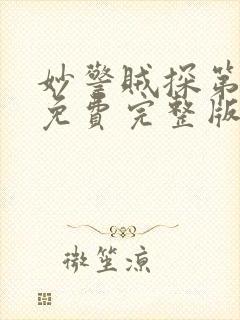 妙警贼探第
免費完整版
微笙凉